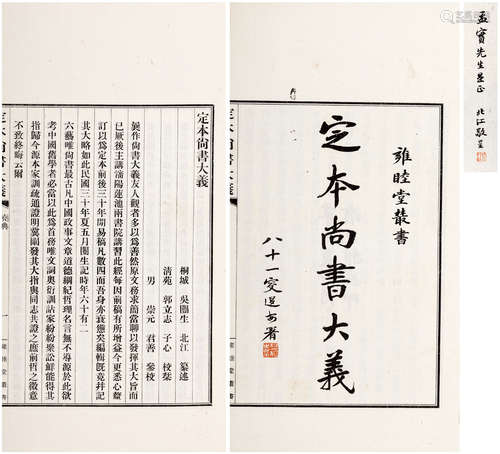 孟實先生並正
北江敬呈
雍睦堂叢書
定本尚書大義
八十一叟
署
定本尚書大義
桐城 吳闓生 北江 纂述
清苑 郭立志 子心 校栞
男 崇元 君善 參校
曩作尚書大義友人觀者多以爲善然原文務求簡當聊以發揮其大旨而
已厥後主講瀋陽蓮池兩書院講習此經每因前稿有所增益今更悉心釐
訂以爲定本前後三十年間易稿凡數四而吾身亦衰憊矣編輯既竟幷記
其大略如此民國三十年夏五月闓生記時年六十有二
六藝唯尚書最古凡中國政事文章道德綱紀哲理名言無不導源於此欲
考中國舊學者必當以此爲首務唯文詞奧衍訓詁家紛聚訟鮮能得其
指歸今源本家訓疏通證明冀闡發其大指與同志共證之庶前哲之微意
不致終晦云爾
定本尚書大義
堯典
一
雍睦堂叢書